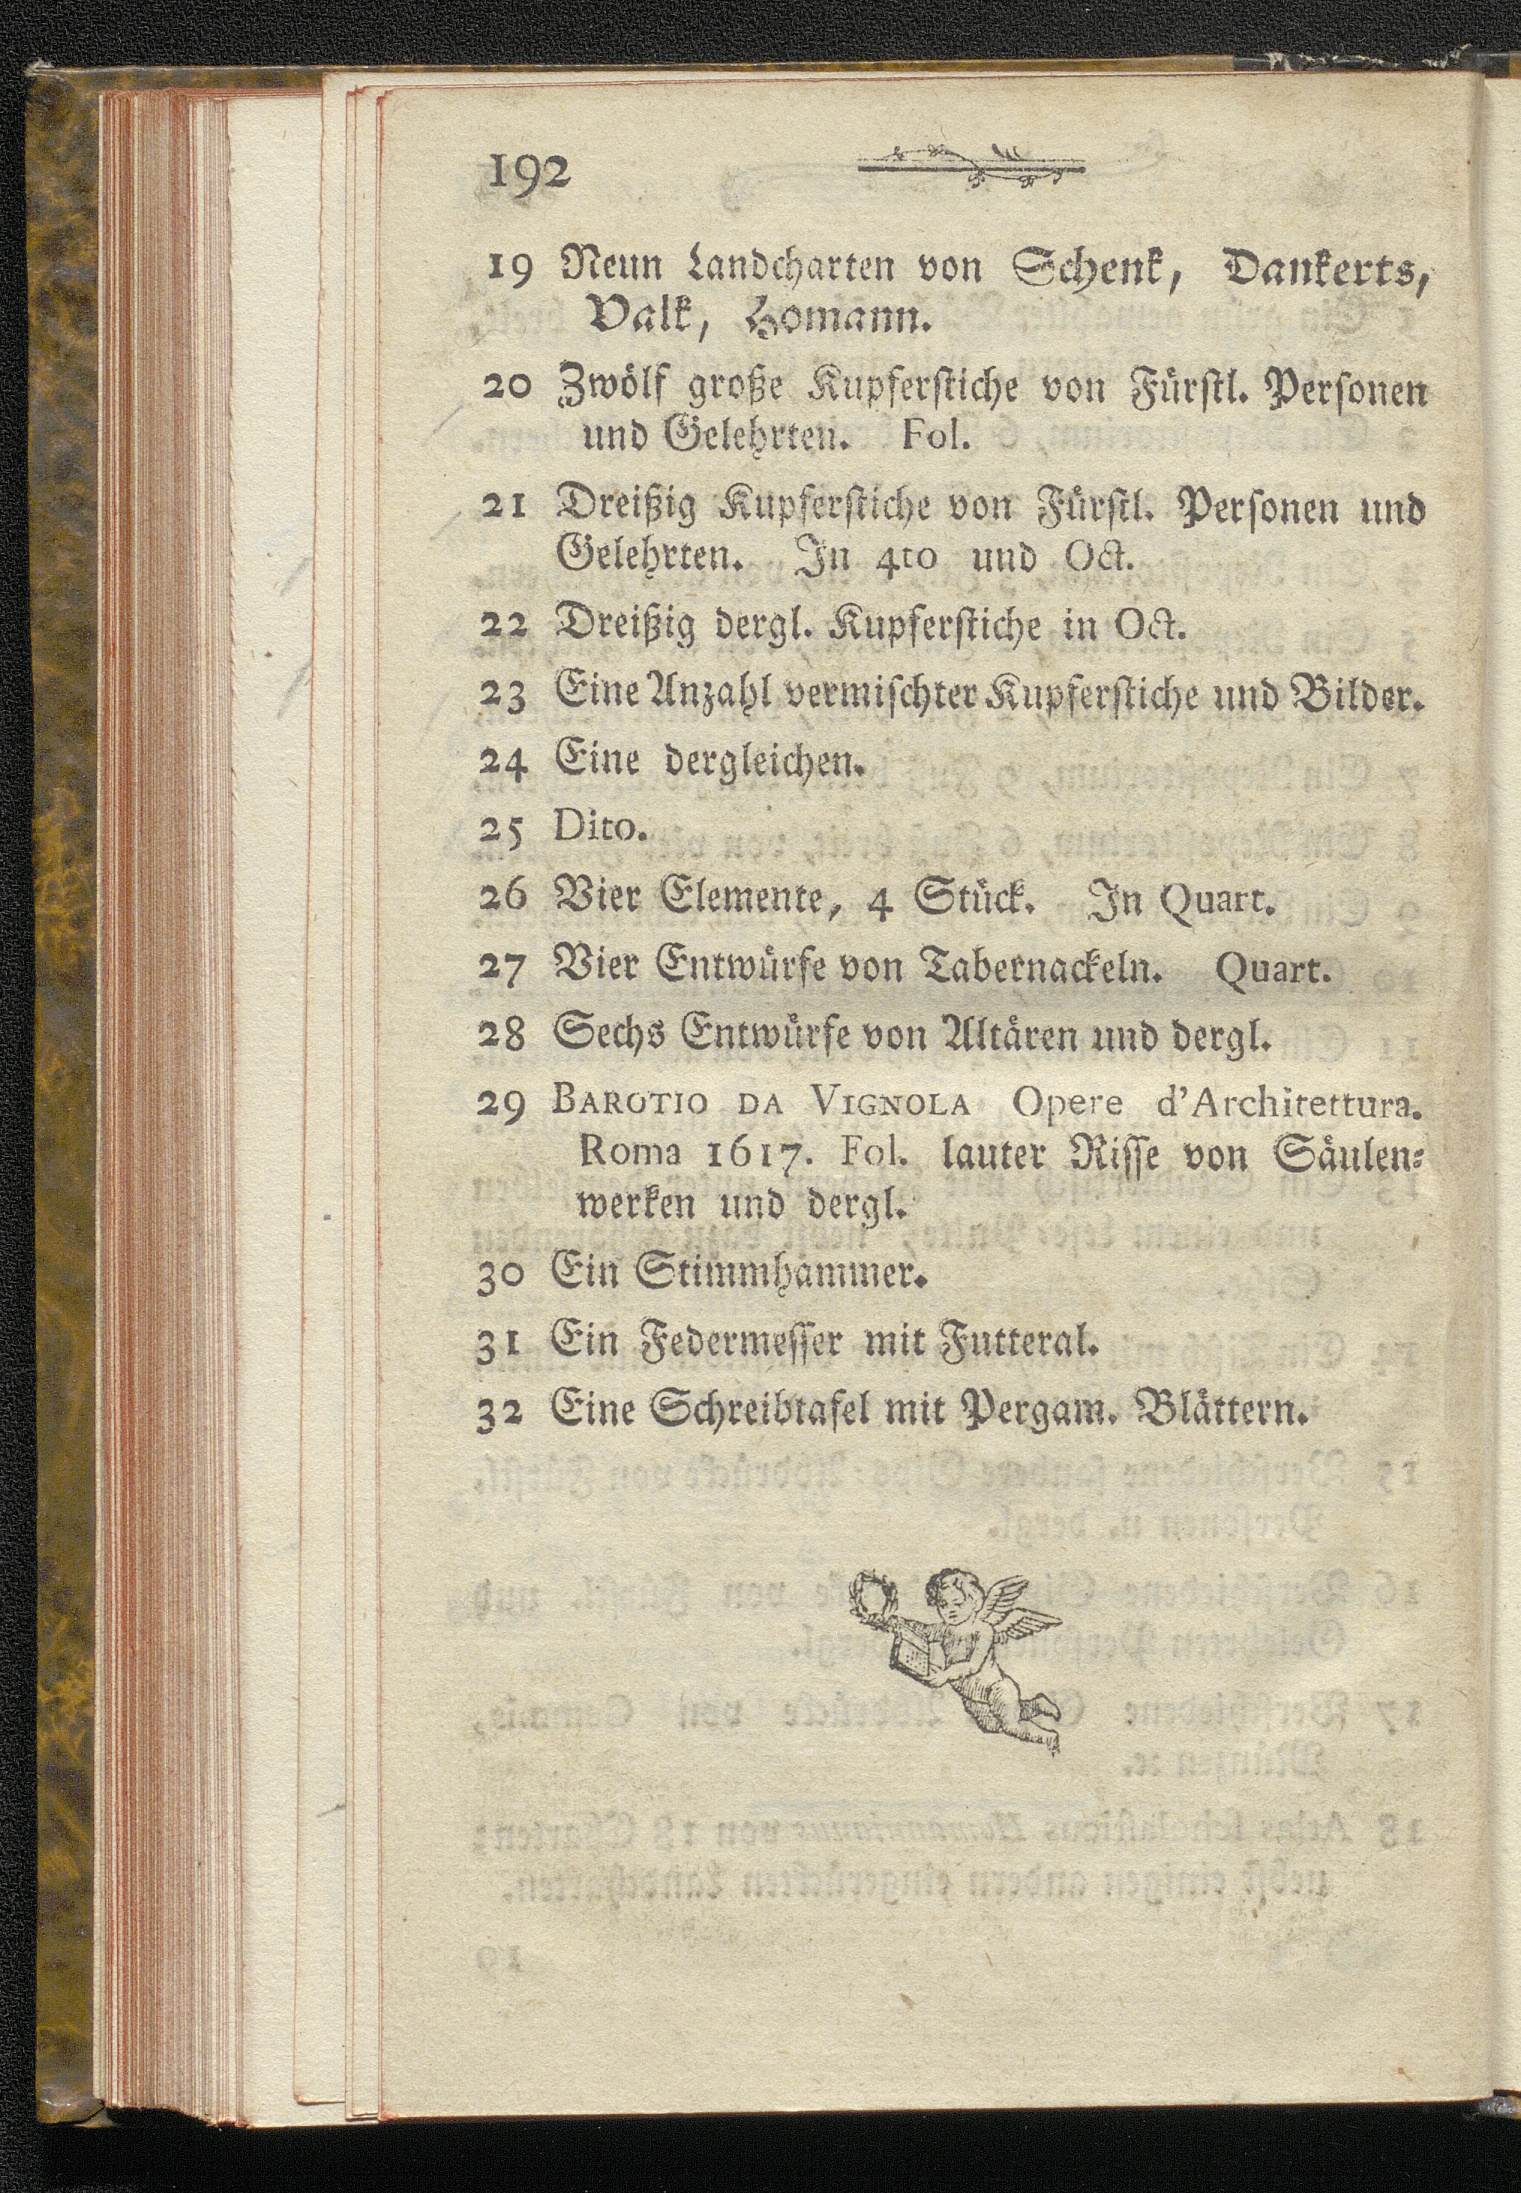 192
19 Neun Landcharten von Schenk, Dankerts,
Valk, Homann.
20 Zwölf große Kupferstiche von Fürstl. Personen
und Gelehrten. Fol.
21 Dreißig Kupferstiche von Fürstl. Personen und
Gelehrten. In 4to und Oct.
22 Dreißig dergl. Kupferstiche in Oct.
23 Eine Anzahl vermischter Kupferstiche und Bilder.
24 Eine dergleichen.
25 Dito.
26 Vier Elemente, 4 Stück. In Quart.
27 Vier Entwürfe von Tabernackeln. Quart.
28 Sechs Entwürfe von Altären und dergl.
29 BAROTIO DA VIGNOLA Opere d'Architettura.
Roma 1617. Fol. lauter Risse von Säulen-
werken und dergl.
30 Ein Stimmhammer.
31 Ein Federmesser mit Futteral.
32 Eine Schreibtafel mit Pergam. Blättern.